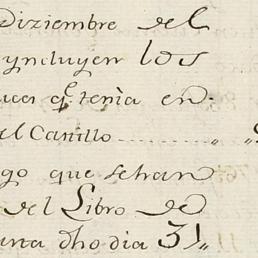 Diziembre del
yncluyen los
uces q.e tenia en
el Canillo .......... „ „
go que se han
del Libro de
una dho dia 31„